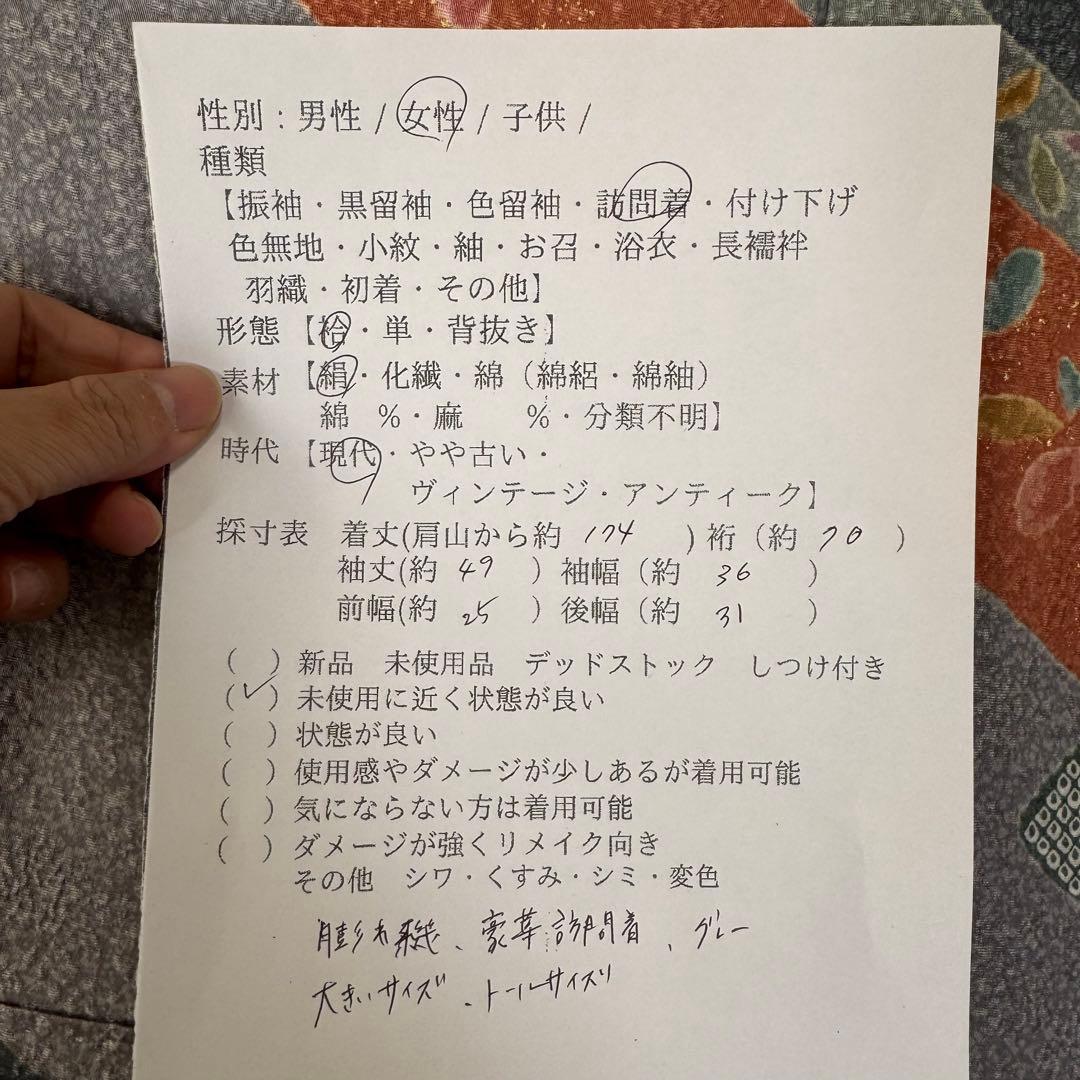 性別：男性 / 女性 / 子供 /
種類
【振袖・黒留袖・色留袖・訪問着・付け下げ
色無地・小紋・紬・お召・浴衣・長襦袢
羽織・初着・その他】
形態【袷・単・背抜き】
素材【絹・化繊・綿（綿絽・綿紬）
綿　％・麻　　％・分類不明】
時代【現代・やや古い・
ヴィンテージ・アンティーク】
採寸表　着丈(肩山から約 174 ) 裄（約 70 ）
袖丈(約 49 ）袖幅（約 36 ）
前幅(約 25 ）後幅（約 31 ）
（　）新品　未使用品　デッドストック　しつけ付き
（✓）未使用に近く状態が良い
（　）状態が良い
（　）使用感やダメージが少しあるが着用可能
（　）気にならない方は着用可能
（　）ダメージが強くリメイク向き
その他　シワ・くすみ・シミ・変色
、豪華訪問着、グレー
大きいサイズ、トールサイズ